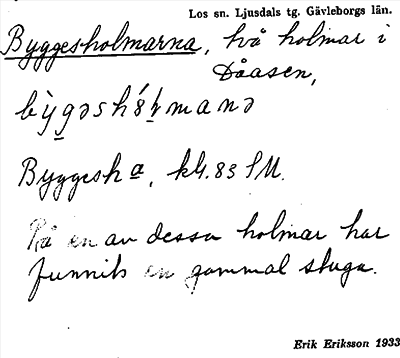 Los sn. Ljusdals tg. Gävleborgs län.
Byggesholmarna, två holmar i
Dåasen,
Byggesh a, kbl. 83 SU.
På en av dessa holmar har
funnits en gammal stuga.
Erik Eriksson 1933